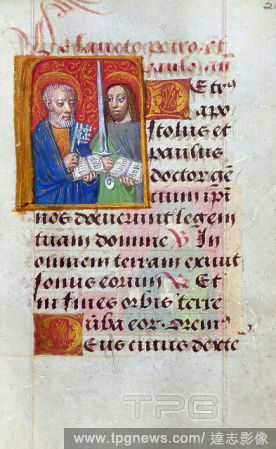 De sancto petro et
paulo an
Petrꝰ
apo
stolus et
paulus
doctor gē
tium ip̄i
nos docuerunt legem
tuam domine ℟ In
omnem terram exiuit
sonus eorum ℟ Et
in fines orbis terre
v̄ba eor Orem̄
Deus cuius dexte
TPG
www.tpgnews.com / 達志影像